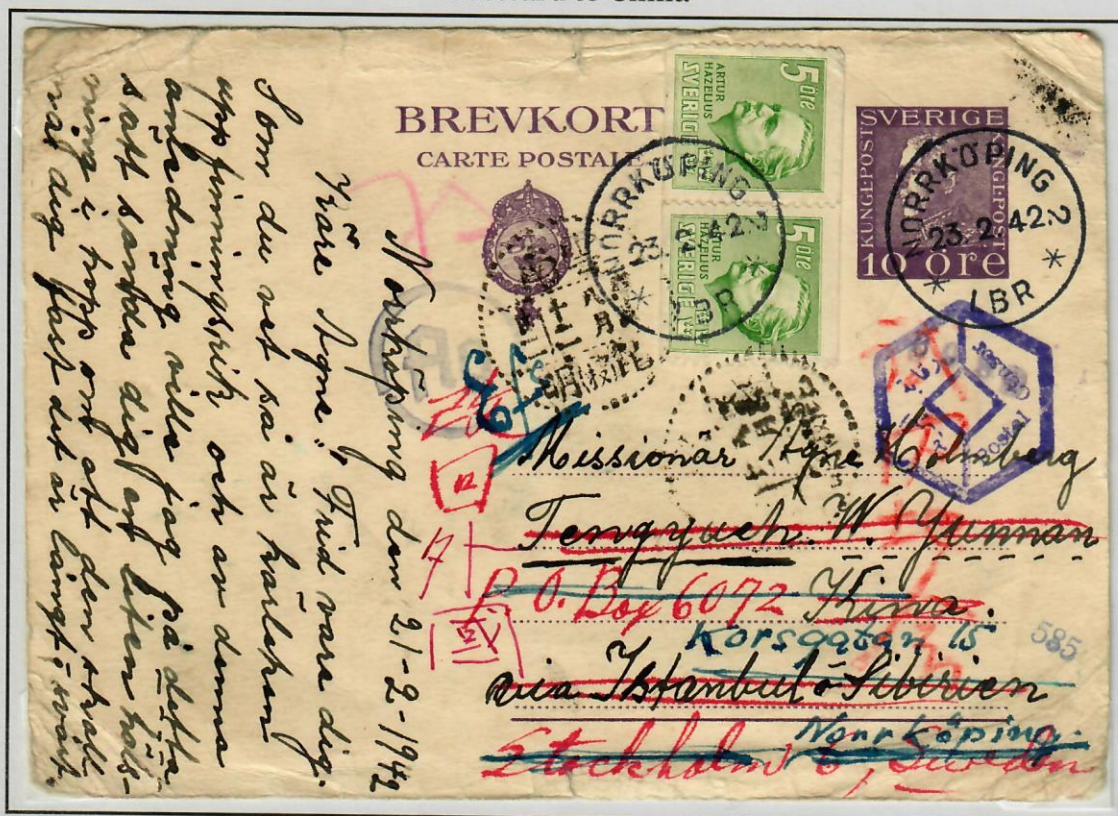 BREVKORT
CARTE POSTALE
5 öre
ARTUR
HAZELIUS
SVERIGE
5 öre
ARTUR
HAZELIUS
SVERIGE
SVERIGE
KUNGL·POST
KUNGL·POST
10 öre
NORRKÖPING
23.2.42
* LBR *
NORRKÖPING 2
23.2.42
* LBR *
Missionär Agne Holmberg
Tengyueh. W. Yunnan
P.O. Box 6072 Kina.
Korsgatan 15
via Istanbul-Sibirien
Norrköping.
Stockholm 6, Sweden
585
Postal
回
外
國
Norrköping den 21-2-1942
Käre Agne! Frid vare dig.
Som du vet så är kärleken
uppfinningsrik och av denna
anledning ville jag på detta
sätt sända dig en liten häls-
ning i hopp om att den skall
nå dig fast det är långt o svårt.